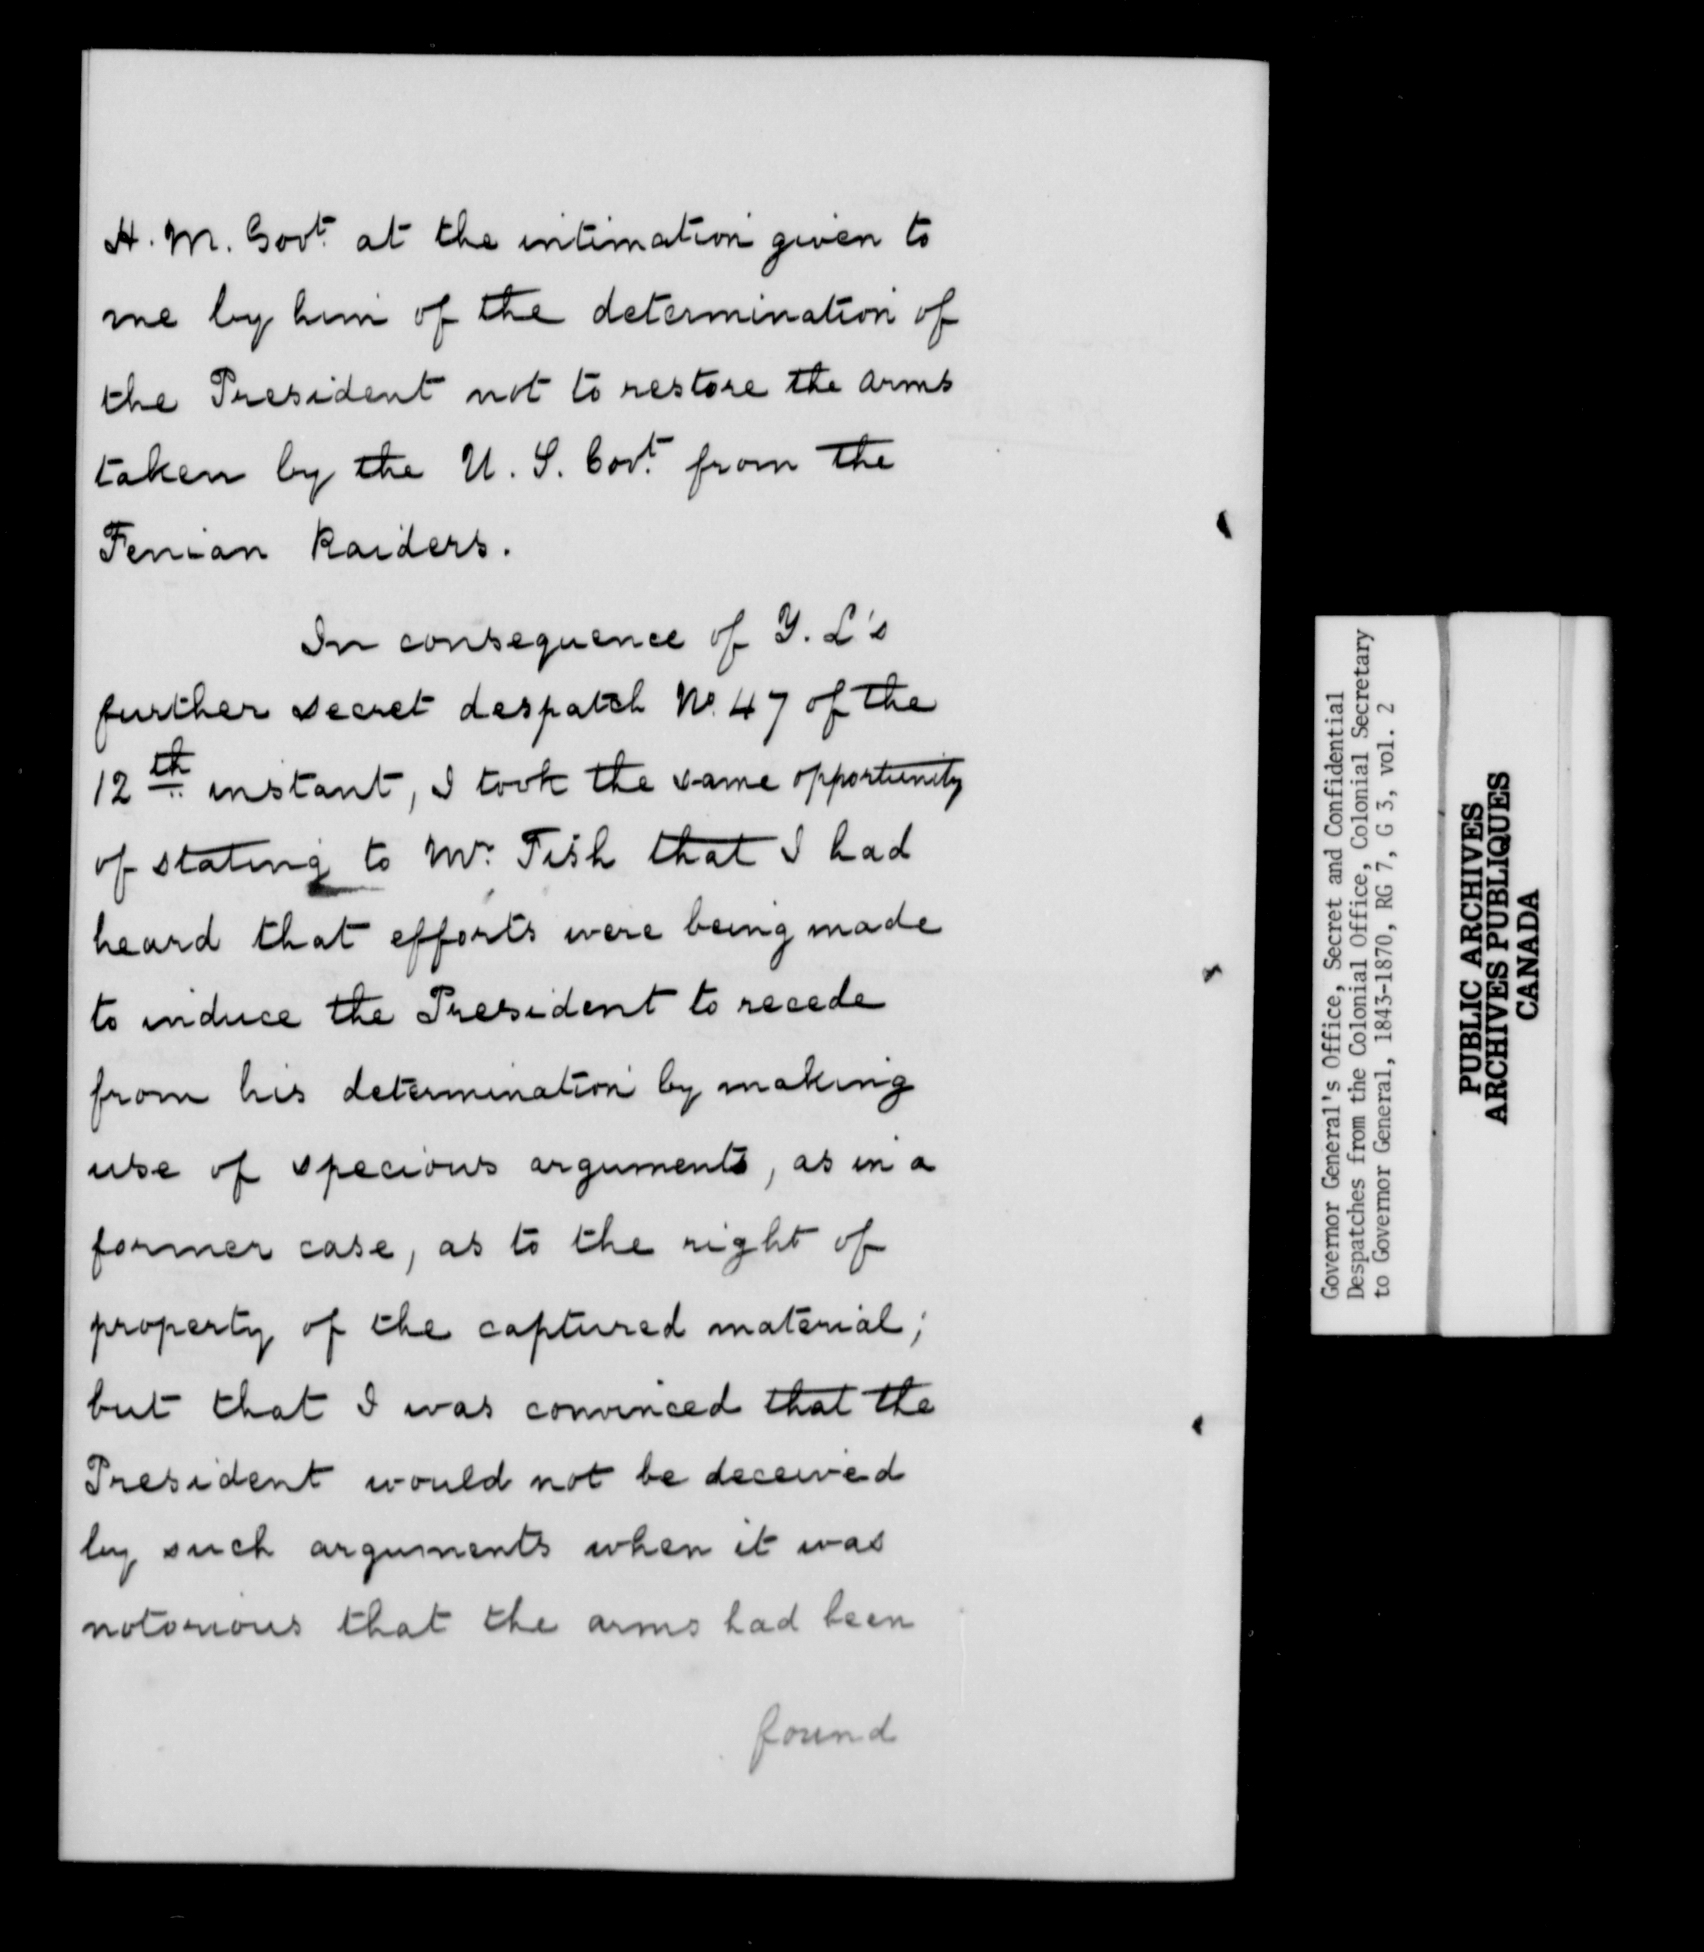 H. M. Govt. at the intimation given to
me by him of the determination of
the President not to restore the arms
taken by the U. S. Govt. from the
Fenian Raiders.
In consequence of Y. L's
further secret despatch No. 47 of the
12th instant, I took the same opportunity
of stating to Mr. Fish that I had
heard that efforts were being made
to induce the President to recede
from his determination by making
use of specious arguments, as in a
former case, as to the right of
property of the captured material;
but that I was convinced that the
President would not be deceived
by such arguments when it was
notorious that the arms had been
found
Governor General's Office, Secret and Confidential
Despatches from the Colonial Office, Colonial Secretary
to Governor General, 1843-1870, RG 7, G 3, vol. 2
PUBLIC ARCHIVES
ARCHIVES PUBLIQUES
CANADA